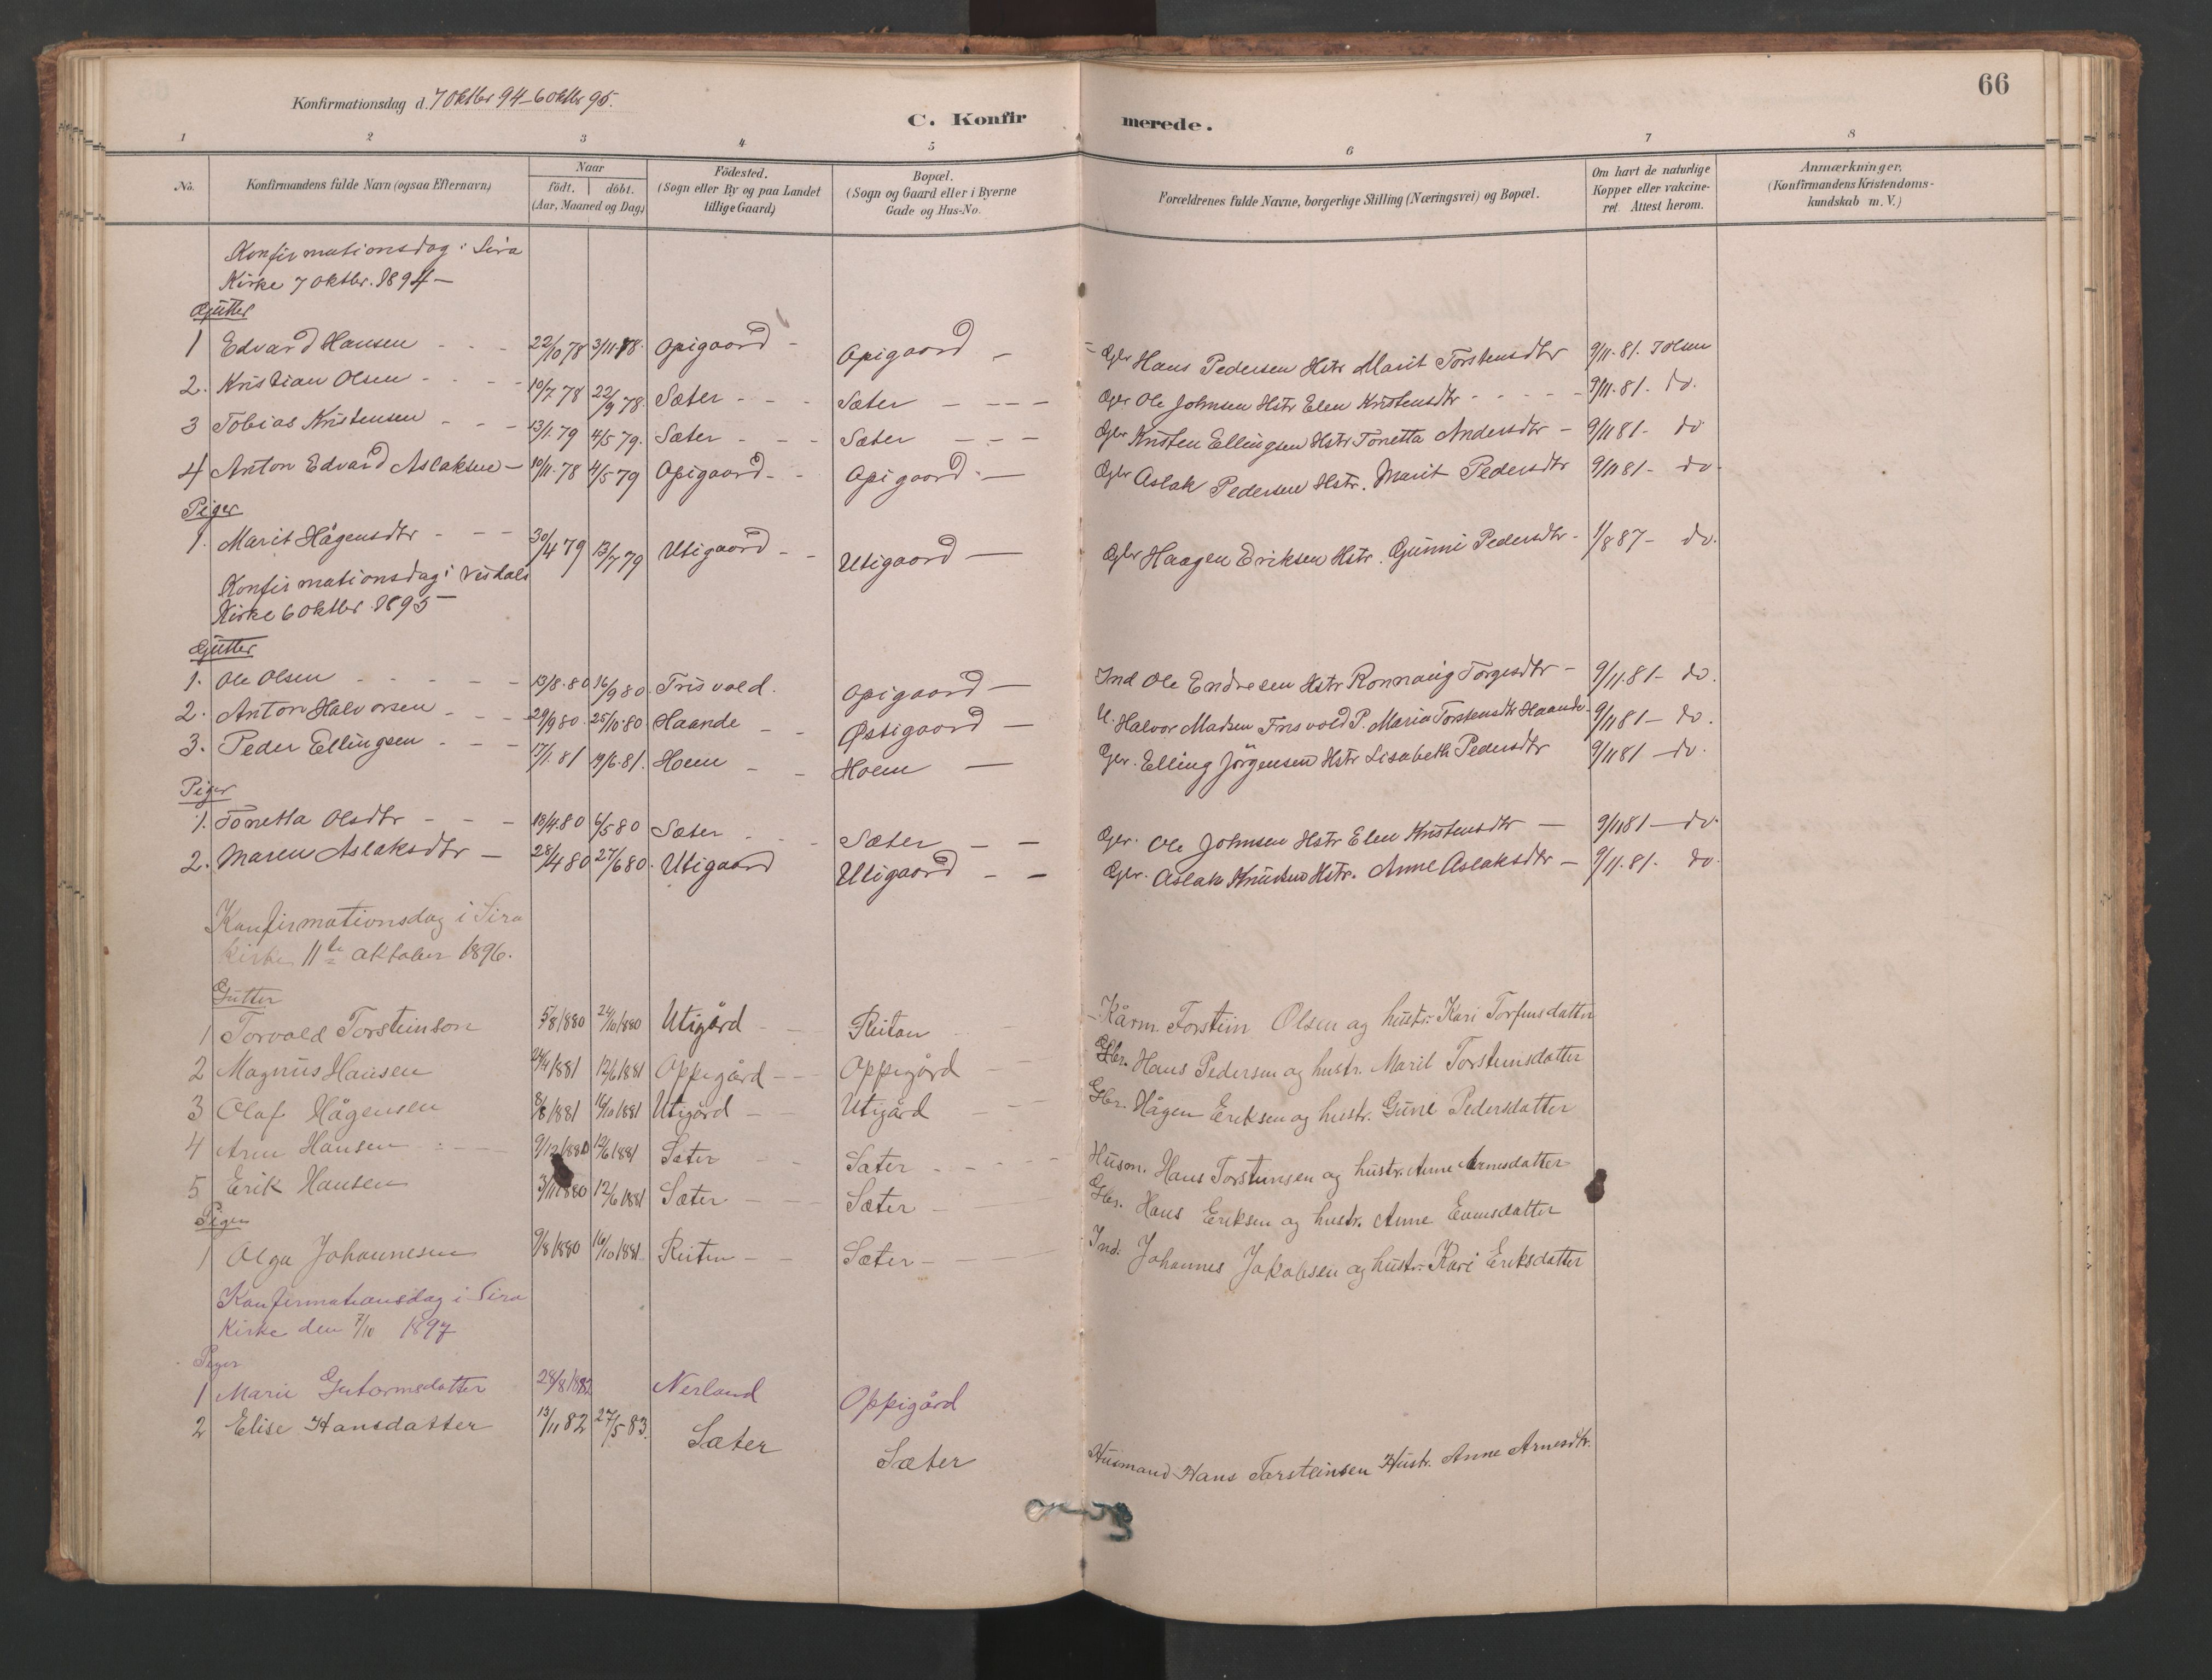 Konfirmationsdag d. 7 Oktbr 94 – 6 Oktbr 95.
66
C. Konfirmerede.
1 2 3 4 5 6 7 8
No. Konfirmandens fulde Navn (ogsaa Efternavn) Naar födt. döbt. (Aar, Maaned og Dag) Födested. (Sogn eller By og paa Landet tillige Gaard) Bopæl. (Sogn og Gaard eller i Byerne Gade og Hus-No. Forældrenes fulde Navne, borgerlige Stilling (Næringsvei) og Bopæl. Om havt de naturlige Kopper eller vakcineret Attest herom. Anmærkninger. (Konfirmandens Kristendomskundskab m. V.)
Konfirmationsdag i Sira
Kirke 7 Oktbr. 1894 –
Gutter
1 Edvard Hansen - - - 22/10 78 3/11 78. Opigaard - Opigaard - Gbr Hans Pedersen Hstr Marit Torstensdtr 9/11. 81. Tolsen
2. Kristian Olsen - - - 10/7 78 22/9 78. Sæter - - - Sæter - - - Gbr Ole Johnsen Hstr Elen Kristensdtr - - - - 9/11. 81. do.
3 Tobias Kristensen - - - 13/1. 79 4/5 79. Sæter - - - Sæter - - - Gbr Kristen Ellingsen Hstr Tonetta Andersdtr - 9/11 81 - do
4 Anton Edvard Aslaksen - 10/11. 78 4/5 79 Opigaard - - Opigaard - Gbr Aslak Pedersen Hstr. Marit Pedersdtr 9/11 81 - do -
Piger
1. Marit Hågensdtr - - - 30/4 79 13/7 79 Utigaard - - Utigaard - Gbr Haagen Eriksen Hstr. Gunni Pedersdtr - 1/8 87 - do.
Konfirmationsdag i Visdals
Kirke 6 Oktbr 1895 –
Gutter
1. Ole Olsen - - - - - 13/8. 80 16/9 80. Frisvold. Opigaard - Ind Ole Endresen Hstr Ronnaug Torgersdtr - 9/11. 81 - do.
2. Anton Halvorsen - - - 29/9 80. 25/10. 80 Haande - - Østigaard - U. Halvor Madsen Frisvold P. Maria Torstensdtr Haande. 9/11 81 - do.
3. Peder Ellingsen - - - 17/1. 81 19/6. 81. Hoem - - Hoem - Gbr. Elling Jörgensen Hstr Lisabeth Pedersdtr 9/11 81 - do.
Piger
1. Tonetta Olsdtr - - - 18/4. 80 6/5 80 Sæter - - - Sæter - - Gbr. Ole Johnsen Hstr Elen Kristensdtr - 9/11 81 - do.
2. Maren Aslaksdtr - 28/4 80 27/6 80. Utigaard Utigaard - - Gbr. Aslak Knudsen Hstr. Anne Aslaksdtr - 9/11. 81. do.
Konfirmationsdag i Sira
kirke 11te oktober 1896.
Gutter
1 Torvald Torsteinson 5/8 1880 24/10 1880 Utigård - - Reitan - - Torstein Olsen og hustr: Kari
2 Magnus Hansen 24/4 1881 12/6 1881 Oppigård - - Oppigård - Gbr. Hans Pedersen og hustr. Marit Torsteinsdatter
3 Olaf Hågensen 8/8 1881 16/10 1881 Utigård - - Utigård - - Gbr. Hågen Eriksen og hustr. Gune Pedersdatter
4 Arne Hansen - - - 9/12 1880 12/6 1881 Sæter - - Sæter - - - - Husm. Hans Torsteinsen og hustr. Anne Arnesdatter
5 Erik Hansen 3/11 1880 12/6 1881 Sæter - - - Sæter - - Gbr. Hans Eriksen og hustr. Anne Evensdatter
Piger
1 Olga Johannesen 9/8 1880 16/10 1881 Reiten - - Sæter - - - Ind: Johannes Jakobsen og hustr: Kari Eriksdatter
Konfirmationsdag i Sira
Kirke den 7/10 1897
Piger
1 Marie Gutormsdatter 28/8 1882 Nerland Oppigård
2 Elise Hansdatter 13/11 82 27/5 83. Sæter Sæter Husmand Hans Torsteinsen Hustr. Anne Arnesdtr.